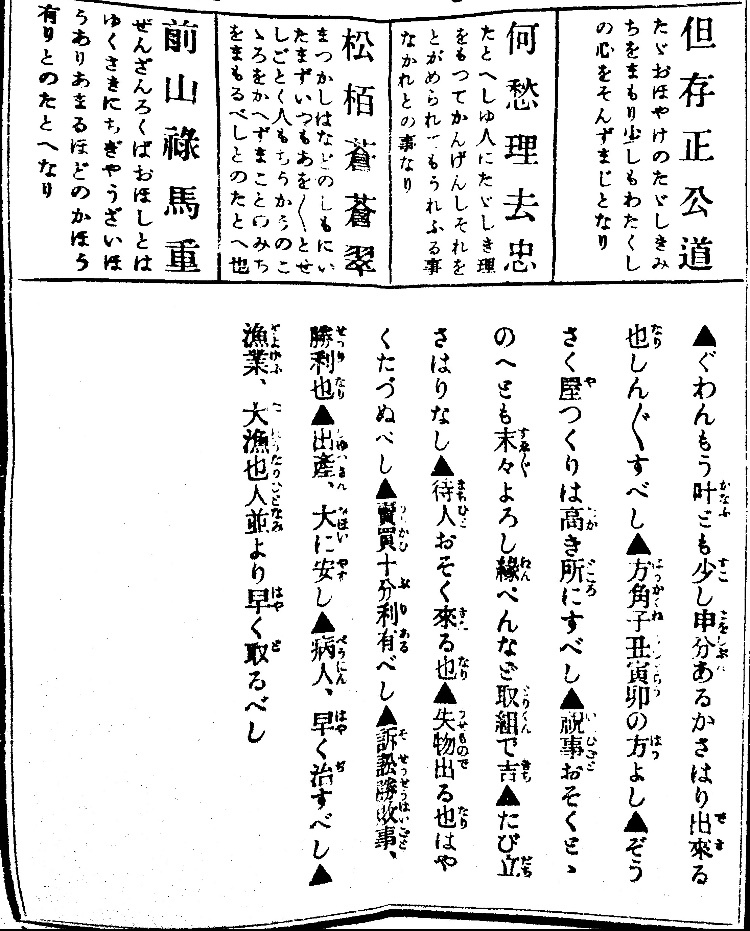 但存正公道
たゞおほやけのたゞしきみ
ちをまもり少しもわたくし
の心をそんずまじとなり
何愁理去忠
たとへしゆ人にたゞしき理
をもつてかんげんしそれを
とがめられてもうれふる事
なかれとの事なり
松栢蒼蒼翠
まつかしはなどのしもにい
たまずいつもあを〱とせ
しごとく人もちうかうのこ
ゝろをかへずまことのみち
をまもるべしとのたとへ也
前山祿馬重
ぜんざんろくばおほしとは
ゆくさきにちぎやうざいほ
うありあまるほどのかほう
有りとのたとへなり
▲ぐわんもう叶ども少し申分あるかさはり出來る
也しん〲すべし▲方角子丑寅卯の方よし▲ぞう
さく屋つくりは高き所にすべし▲祝事おそくとゝ
のへども末々よろし縁ぺんなど取組で吉▲たび立
さはりなし▲待人おそく來る也▲失物出る也はや
くたづぬべし▲賣買十分利有べし▲訴訟勝敗事、
勝利也▲出產、大に安し▲病人、早く治すべし▲
漁業、大漁也人並より早く取るべし